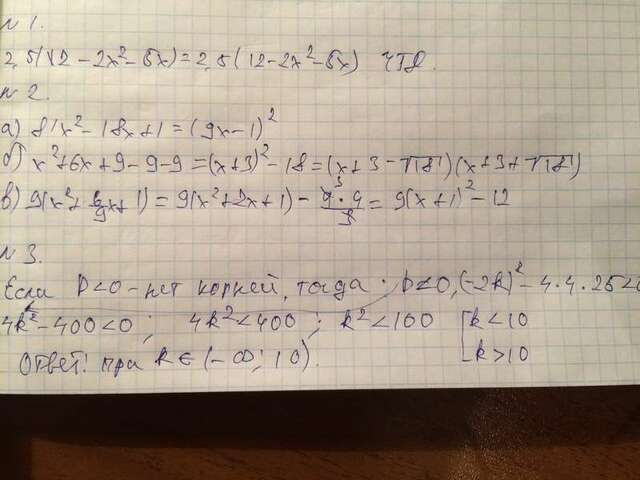 N 1.
2,5(12 - 2x² - 6x) = 2,5(12 - 2x² - 6x) ЧТД.
N 2.
а) 81x² - 18x + 1 = (9x - 1)²
б) x² + 6x + 9 - 9 - 9 = (x + 3)² - 18 = (x + 3 - √18)(x + 3 + √18)
в) 9(x² + 6/9x + 1) = 9(x² + 2x + 1) - 9·4/3 = 9(x + 1)² - 12
N 3.
Если D<0 - нет корней, тогда: D<0, (-2k)² - 4·4·25<0
4k² - 400<0; 4k²<400; k²<100 [k<10
Ответ: при k∈(-∞; 10). k>10